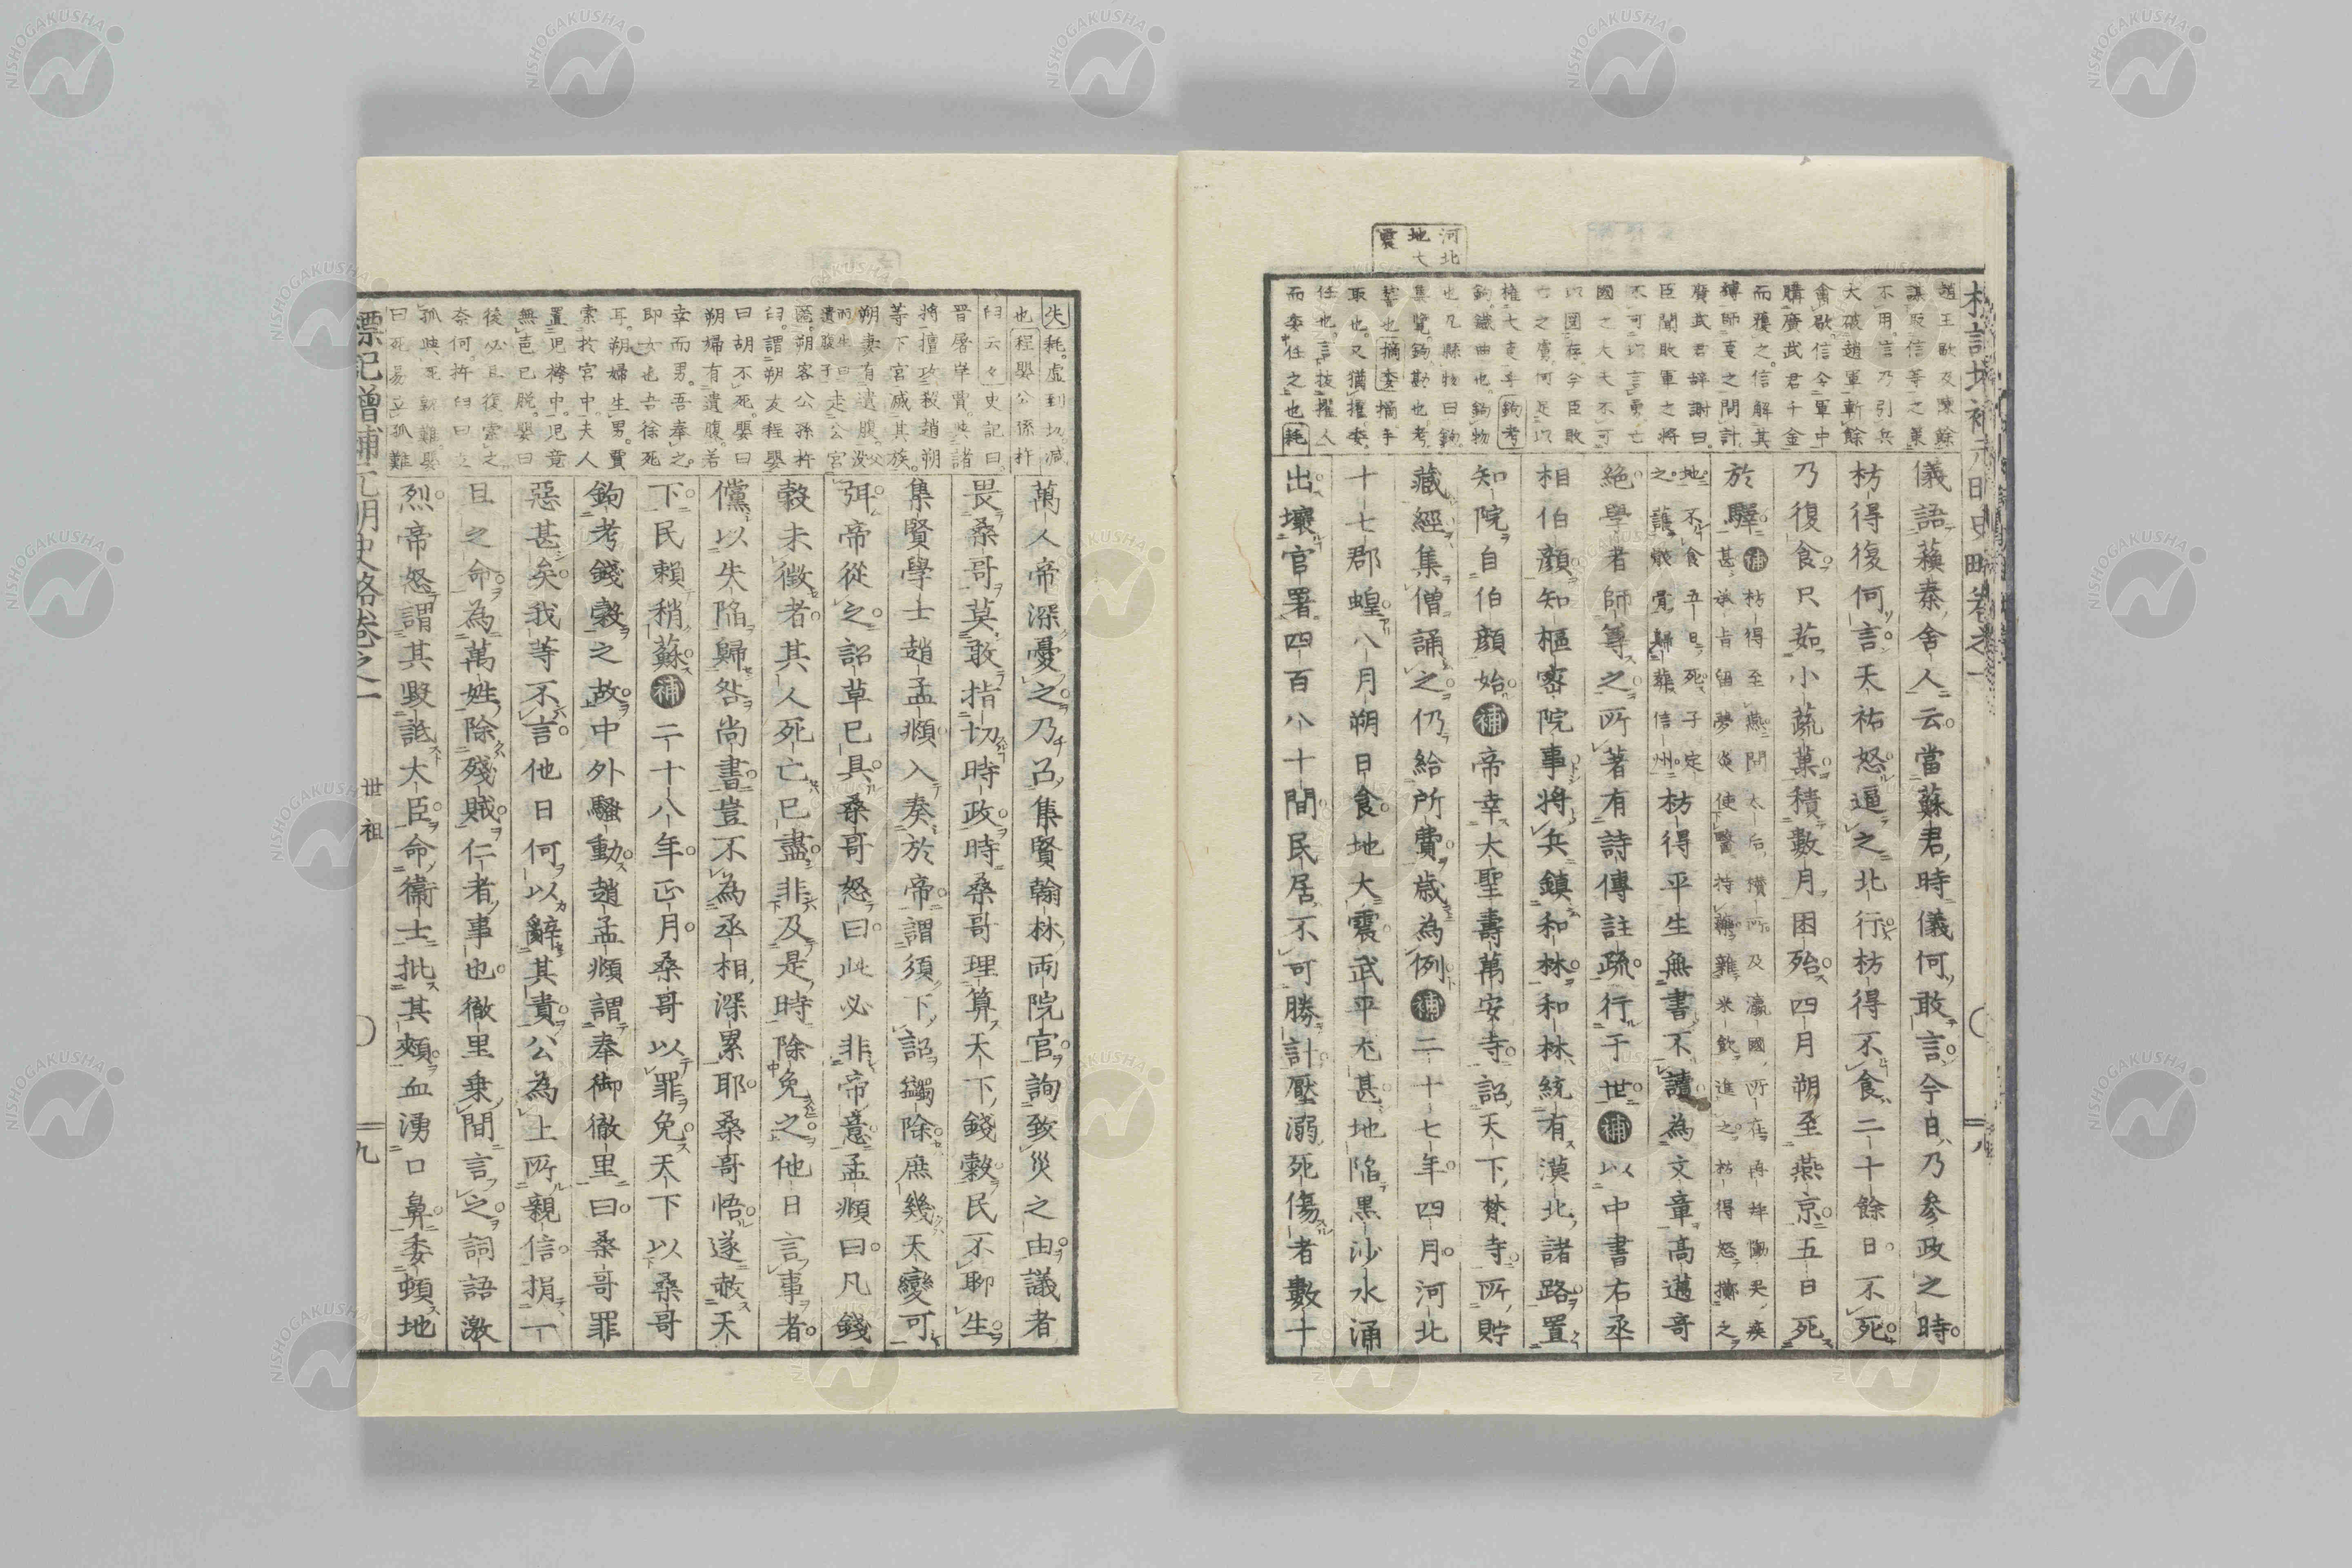 河北
地大
震
趙王歇及陳餘
不用信乃引兵
大破趙軍斬餘
禽歇信令軍中
購廣武君千金
而獲之信解其
縛師事之問計
廣武君辭謝曰
臣聞敗軍之將
不可以言勇亡
國之大夫不可
以圖存今臣敗
亡之虜何足以
權大事乎鉤考
鉤鐵曲也鉤物
也凡縣物曰鉤
集覽鉤勘也考
擊也摘委摘手
取也又猶擅委
任也言拔擢人
而委任之也耗
儀語蘇秦舍人云當蘇君時儀何敢言今日乃參政之時
枋得復何言天祐怒逼之北行枋得不食二十餘日不死
乃復食只茹小蔬菓積數月困殆四月朔至燕京五日死
於驛補枋得至燕問太后攢所及瀛國所在再拜慟哭疾
甚承旨留夢炎使醫持藥雜米飲進之枋得怒擲之
地不食五日死子定
之護骸骨歸葬信州枋得平生無書不讀為文章高邁奇
絶學者師尊之所著有詩傳註疏行于世補以中書右丞
相伯顔知樞密院事將兵鎮和林和林統有漠北諸路置
知院自伯顔始補帝幸大聖壽萬安寺詔天下梵寺所貯
藏經集僧誦之仍給所費歳為例補二十七年四月河北
十七郡蝗八月朔日食地大震武平尤甚地陷黒沙水涌
出壞官署四百八十間民居不可勝計壓溺死傷者數十
失耗虛到切減
也程嬰公孫杵
臼云々史記曰
晋屠岸賈與諸
將擅攻殺趙朔
等下官滅其族
朔妻有遺腹
走公宮
匿朔客公孫杵
臼謂朔友程嬰
曰胡不死嬰曰
朔婦有遺腹若
幸而男吾奉之
即女也吾徐死
耳朔婦生男賈
索於宮中夫人
置兒袴中兒竟
無聲已脱嬰曰
後必且復索之
奈何杵臼曰立
孤與死孰難嬰
曰死易立孤難
萬人帝深憂之乃召集賢翰林兩院官詢致災之由議者
畏桑哥莫敢指切時政時桑哥理算天下錢穀民不聊生
集賢學士趙孟頫入奏於帝謂須下詔蠲除庶幾天變可
弭帝從之詔草已具桑哥怒曰此必非帝意孟頫曰凡錢
穀未徵者其人死亡已盡非及是時除免之他日言事者
儻以失陷歸咎尚書豈不為丞相深累耶桑哥悟遂赦天
下民賴稍蘇補二十八年正月桑哥以罪免天下以桑哥
鉤考錢穀之故中外騷動趙孟頫謂奉御徹里曰桑哥罪
惡甚矣我等不言他日何以辭其責公為上所親信捐一
旦之命為萬姓除殘賊仁者事也徹里乗間言之詞語激
烈帝怒謂其毀詆大臣命衞士批其頰血湧口鼻委頓地
標記增補元明史略卷之一 世祖 九